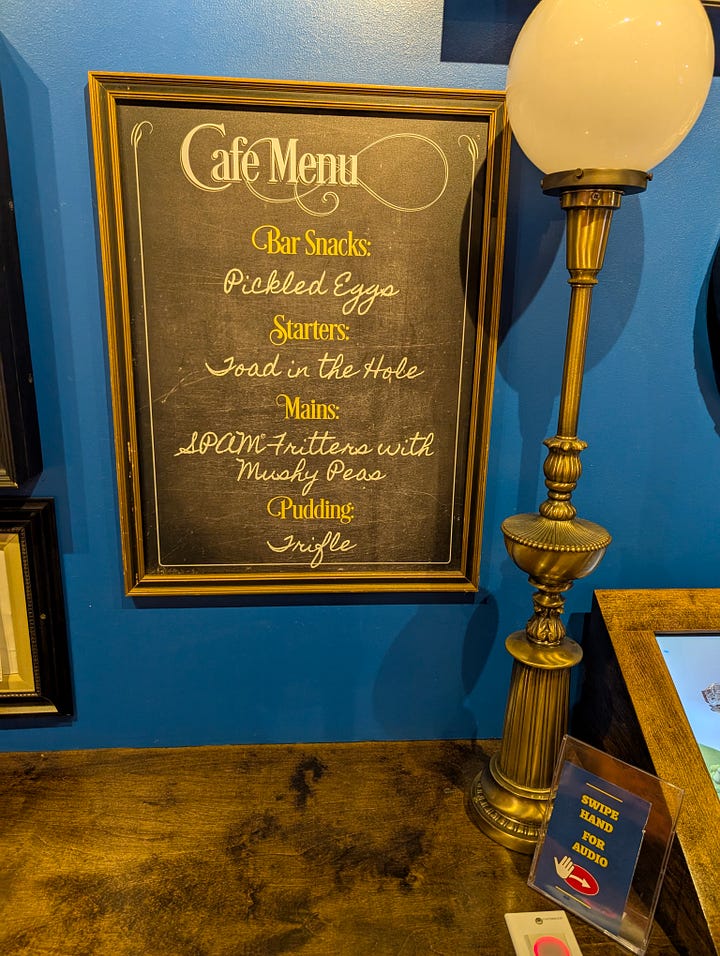 Café Menu
Bar Snacks:
Pickled Eggs
Starters:
Toad in the Hole
Mains:
SPAM® Fritters with
Mushy Peas
Pudding:
Trifle
SWIPE
HAND
FOR
AUDIO